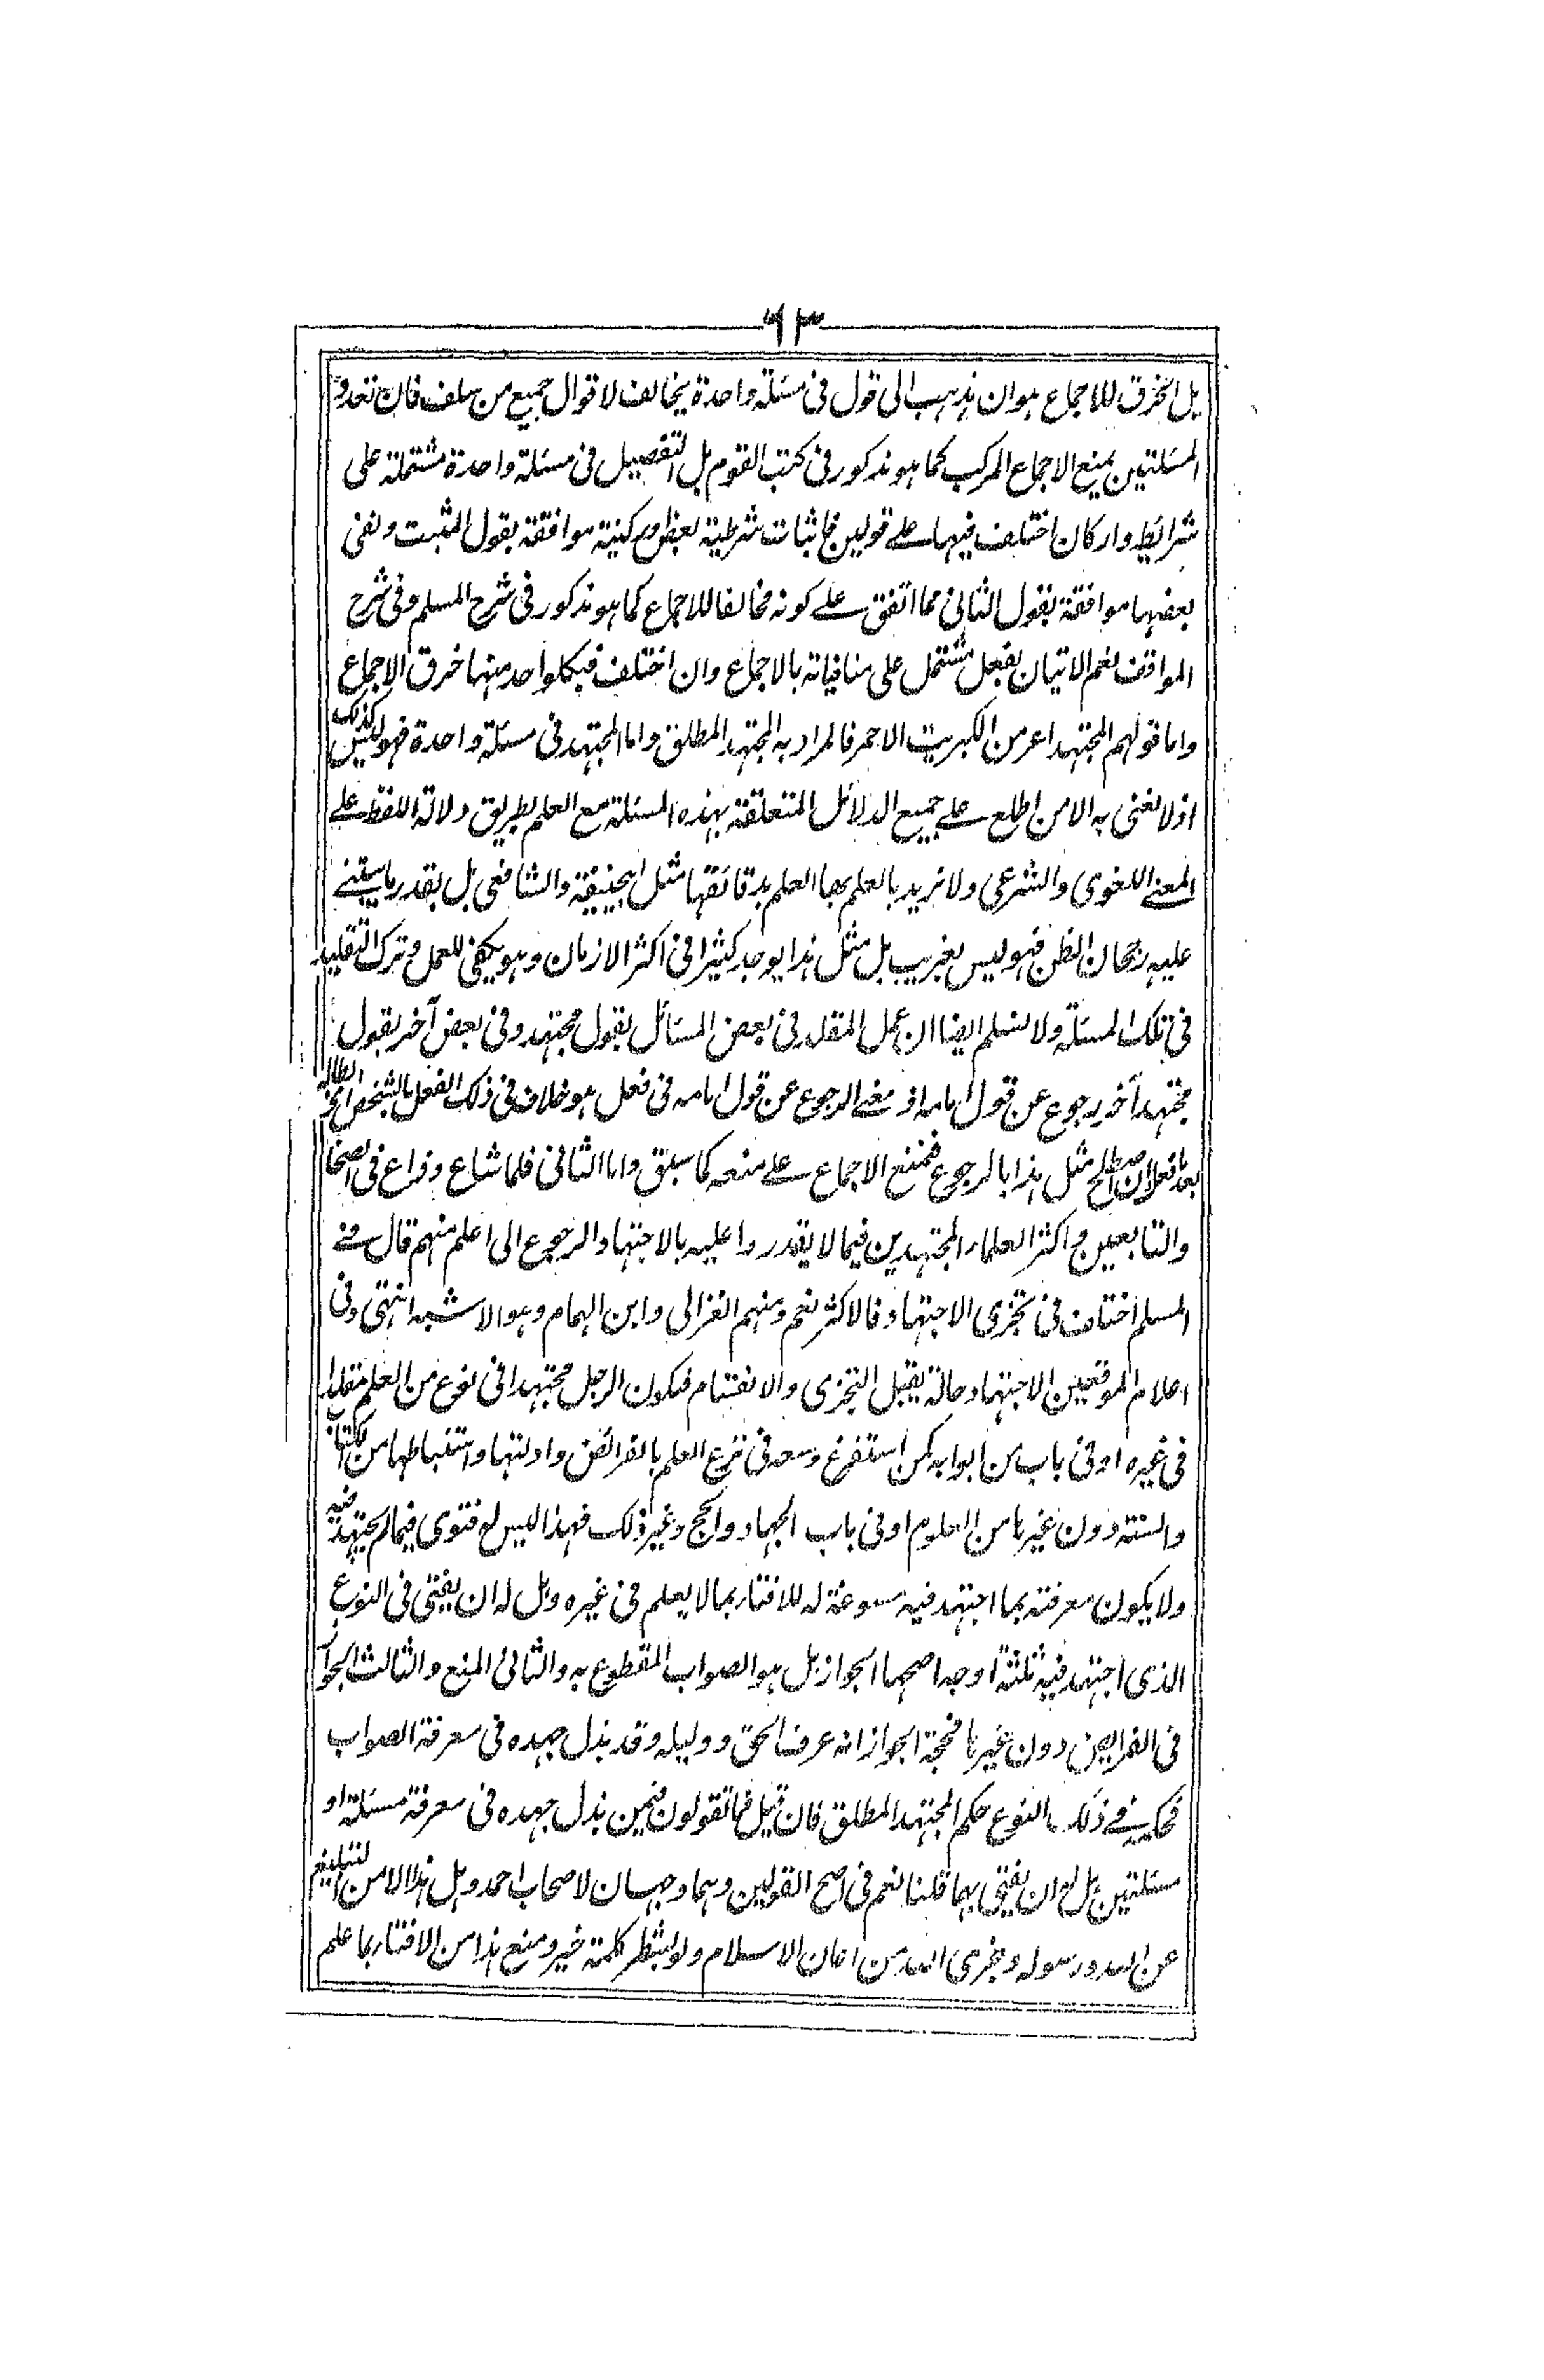 ٦٣
بل الخرق للاجماع هو ان نذهب الى قول فى مسئلة واحدة يخالف لاقوال جميع من سلف فان تعدد
المسئلتين يمنع الاجماع المركب كما هو مذكور فى كتب القوم بل التفصيل فى مسئلة واحدة مشتملة على
شرائط واركان اختلف فيها على قولين فاثبات شرطية بعض وركنية موافقة بقول المثبت ونفى
بعضها موافقة بقول الثانى مما اتفق على كونه مخالفا للاجماع كما هو مذكور فى شرح المسلم وفى شرح
المواقف نعم الاتيان بفعل مشتمل على منافياته بالاجماع وان اختلف فى كلواحد منها خرق الاجماع
واما قولهم المجتهد اعز من الكبريت الاحمر فالمراد به المجتهد المطلق واما المجتهد فى مسئلة واحدة فهو ليس كذلك
اذ لا نعنى به الا من اطلع على جميع الدلائل المتعلقة بهذه المسئلة مع العلم بطريق دلالة اللفظ على
المعنى اللغوى والشرعى ولا نريد بالعلم بها العلم بدقائقها مثل ابيحنيفة والشافعى بل بقدر ما يبتنى
عليه رجحان الظن فهو ليس بغريب بل مثل هذا يوجد كثيرا فى اكثر الازمان وهو يكفى للعمل وترك التقليد
فى تلك المسئلة ولا نسلم ايضا ان عمل المقلد فى بعض المسائل بقول مجتهد وفى بعض آخر بقول
مجتهد آخر رجوع عن قول امامه اذ معنى الرجوع عن قول امامه فى فعل هو خلاف فى ذلك الفعل بالشخص
بعد ما فعل ان اصطلح مثل هذا بالرجوع فنمنع الاجماع على منعه كما سبق واما الثانى فلما شاع وذاع فى الصحابة
والتابعين واكثر العلماء المجتهدين فيما لا يقدروا عليه بالاجتهاد الرجوع الى اعلم منهم قال فى
المسلم اختلف فى تجزى الاجتهاد فالاكثر نعم ومنهم الغزالى وابن الهمام وهو الاشبه انتهى وفى
اعلام الموقعين الاجتهاد حالة يقبل التجزى والانقسام فيكون الرجل مجتهدا فى نوع من العلم مقلدا
فى غيره او فى باب من ابوابه كمن استفرغ وسعه فى نوع العلم بالفرائض وادلتها واستنباطها من الكتاب
والسنة دون غيرها من العلوم او فى باب الجهاد والحج وغير ذلك فهذا ليس له فتوى فيما لم يجتهد فيه
ولا يكون معرفته بما اجتهد فيه مسوغة له للافتاء بما لا يعلم فى غيره وهل له ان يفتى فى النوع
الذى اجتهد فيه ثلثة اوجه اصحها الجواز بل هو الصواب المقطوع به والثانى المنع والثالث الجواز
فى الفرايض دون غيرها فحجة الجواز انه عرف الحق ودليله وقد بذل جهده فى معرفة الصواب
فحكمه فى ذلك النوع حكم المجتهد المطلق فان قيل فما تقولون فيمن بذل جهده فى معرفة مسئلة او
مسئلتين هل له ان يفتى بهما قلنا نعم فى اصح القولين وهما وجهان لاصحاب احمد وهل هذا الا من التبليغ
عن الله ورسوله وجزى الله من اعان الاسلام ولو بشطر كلمة خير ومنع هذا من الافتاء بما علم